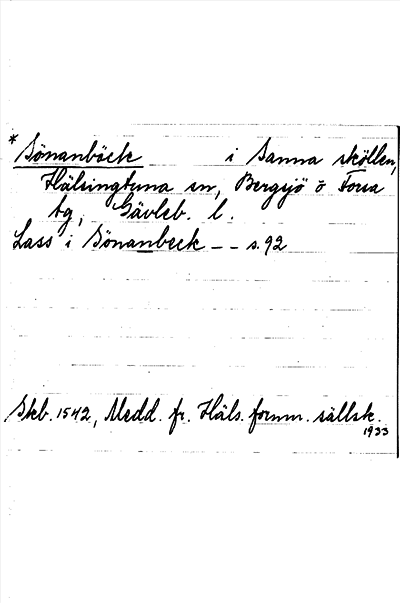 * Sönanböck i Sanna sköllen,
Hälsingtuna sn, Bergsjö o Forsa
tg, Gävleb. l.
Lass i Sönanbeck - - s. 92
Skb. 1542, Medd. fr. Häls. fornm. sällsk.
1933